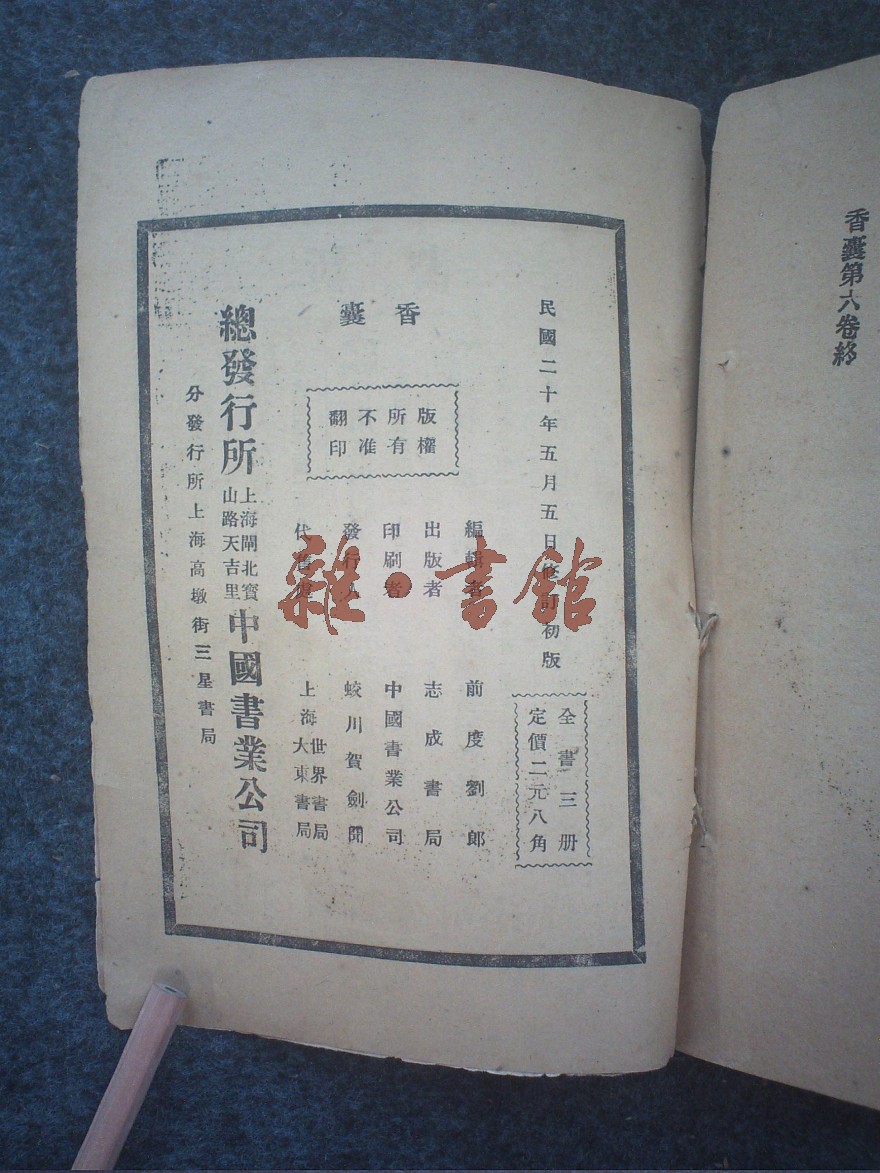 香囊第六卷終
民國二十年五月五日修訂初版
全書三册
定價二元八角
香囊
版權
所有
不准
翻印
編輯者 前度劉郎
出版者 志成書局
印刷者 中國書業公司
發行人 蛟川賀劍開
上海 世界書局
大東書局
總發行所 上海閘北寶
山路天吉里 中國書業公司
分發行所上海高墩街三星書局
雜·書館